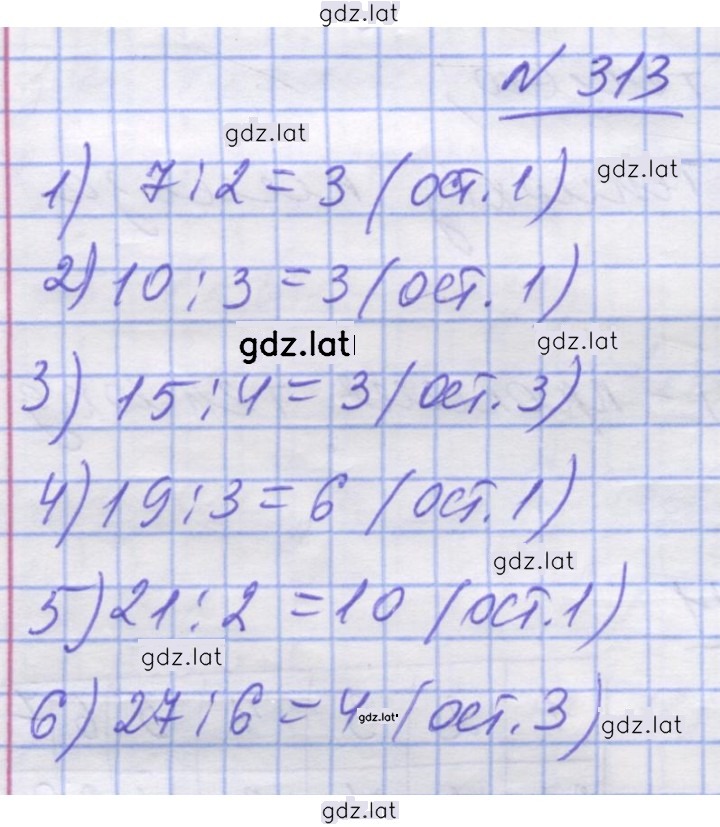 gdz.lat
№ 313
gdz.lat
1) 7 : 2 = 3 (ост. 1)
gdz.lat
2) 10 : 3 = 3 (ост. 1)
gdz.lat
gdz.lat
3) 15 : 4 = 3 (ост. 3)
4) 19 : 3 = 6 (ост. 1)
gdz.lat
5) 21 : 2 = 10 (ост. 1)
gdz.lat
6) 27 : 6 = 4 (ост. 3)
gdz.lat
gdz.lat
gdz.lat